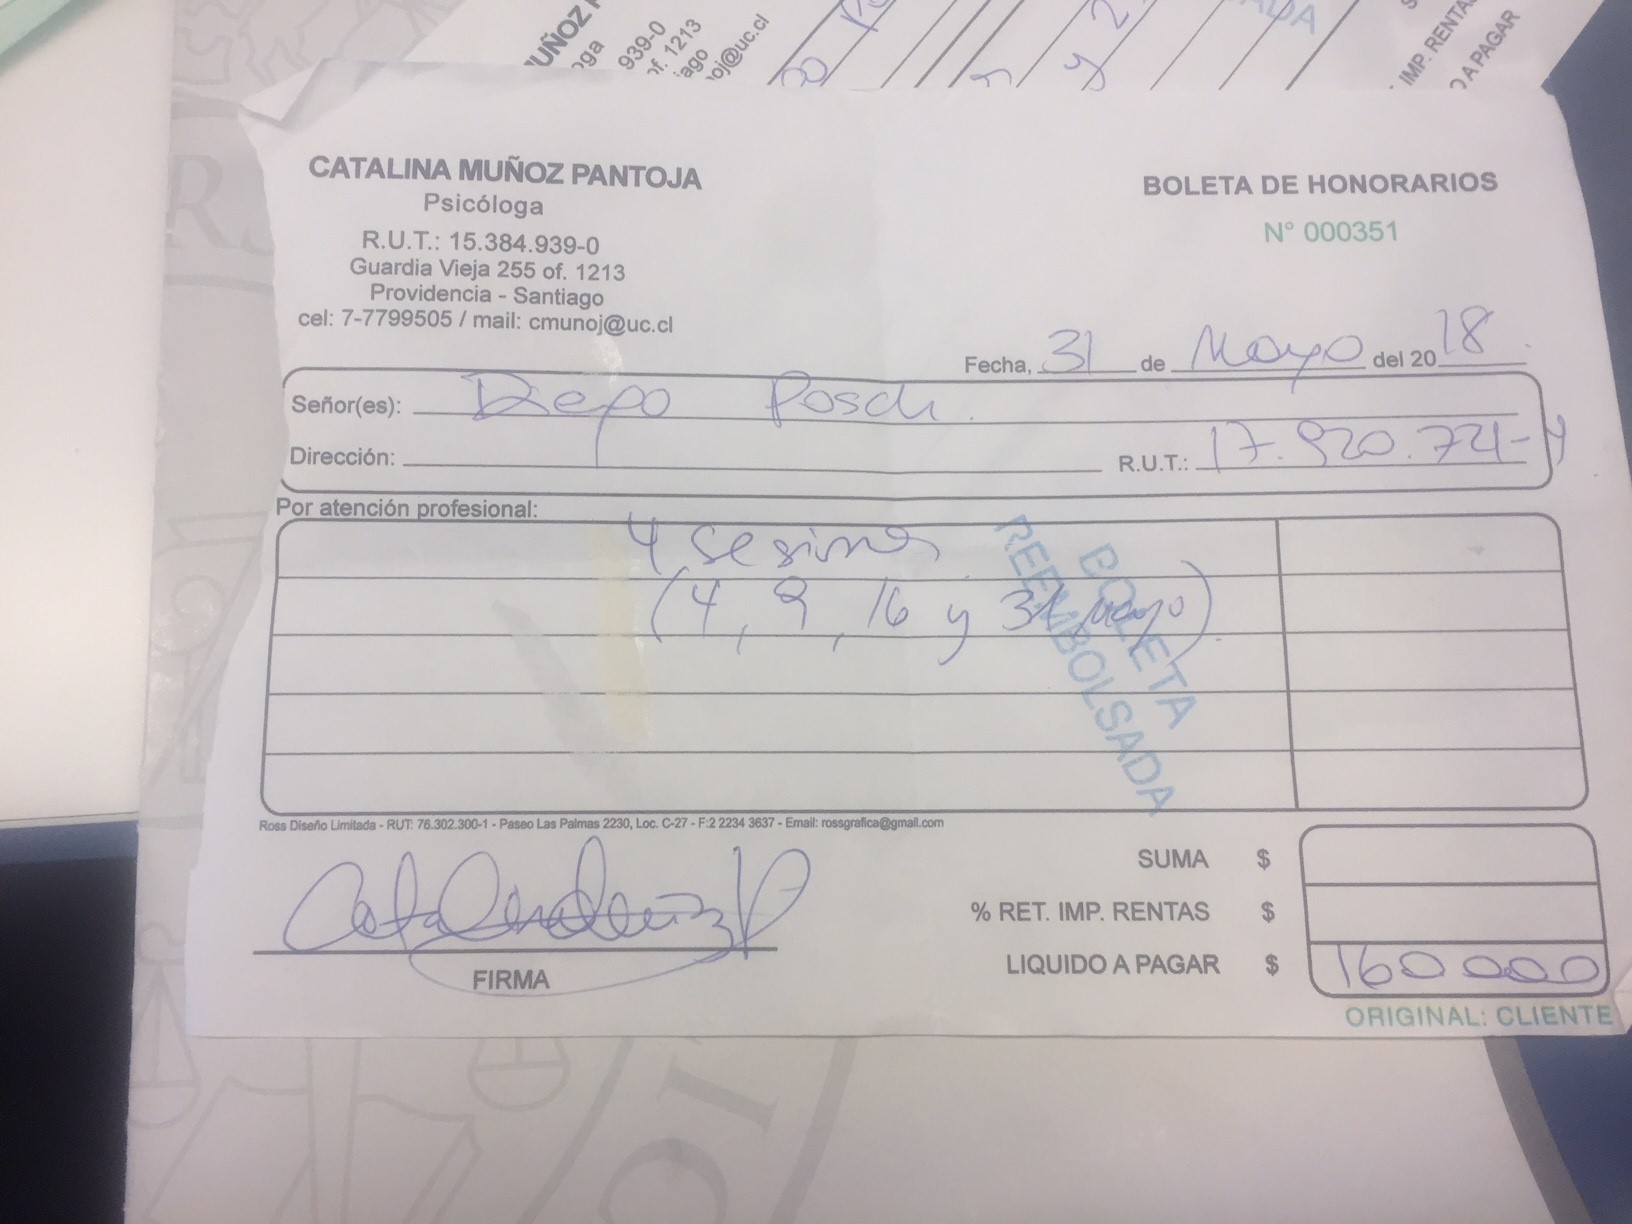 CATALINA MUÑOZ PANTOJA
Psicóloga
R.U.T.: 15.384.939-0
Guardia Vieja 255 of. 1213
Providencia - Santiago
cel: 7-7799505 / mail: cmunoj@uc.cl
BOLETA DE HONORARIOS
N° 000351
Fecha, 31 de Mayo del 2018
Señor(es): Diego Posch
Dirección:
R.U.T.: 17.920.721-4
Por atención profesional:
4 sesiones
(4, 9, 16 y 31 mayo)
BOLETA
REEMBOLSADA
Ross Diseño Limitada - RUT: 76.302.300-1 - Paseo Las Palmas 2230, Loc. C-27 - F:2 2234 3637 - Email: rossgrafica@gmail.com
SUMA $
% RET. IMP. RENTAS $
LIQUIDO A PAGAR $ 160000
FIRMA
ORIGINAL: CLIENTE
939-0
of. 1213
IMP. RENTAS
O A PAGAR